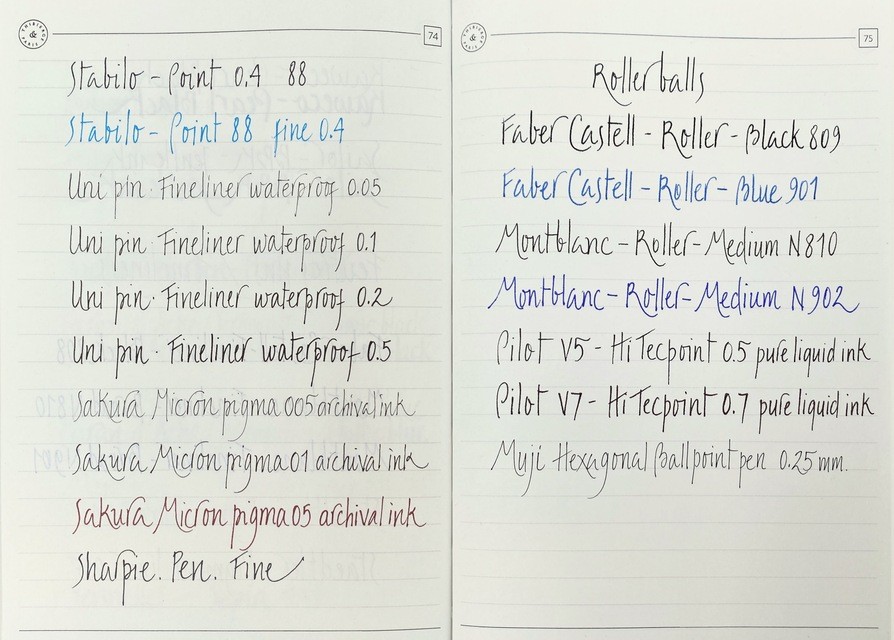 74
Stabilo - Point 0.4 88
Stabilo - Point 88 fine 0.4
Uni pin. Fineliner waterproof 0.05
Uni pin. Fineliner waterproof 0.1
Uni pin. Fineliner waterproof 0.2
Uni pin. Fineliner waterproof 0.5
Sakura Micron pigma 005 archival ink
Sakura Micron pigma 01 archival ink
Sakura Micron pigma 05 archival ink
Sharpie. Pen. Fine
75
Rollerballs
Faber Castell - Roller - Black 809
Faber Castell - Roller - Blue 901
Montblanc - Roller - Medium N 810
Montblanc - Roller - Medium N 902
Pilot V5 - Hi Tecpoint 0.5 pure liquid ink
Pilot V7 - Hi Tecpoint 0.7 pure liquid ink
Muji Hexagonal Ballpoint pen 0.25 mm.